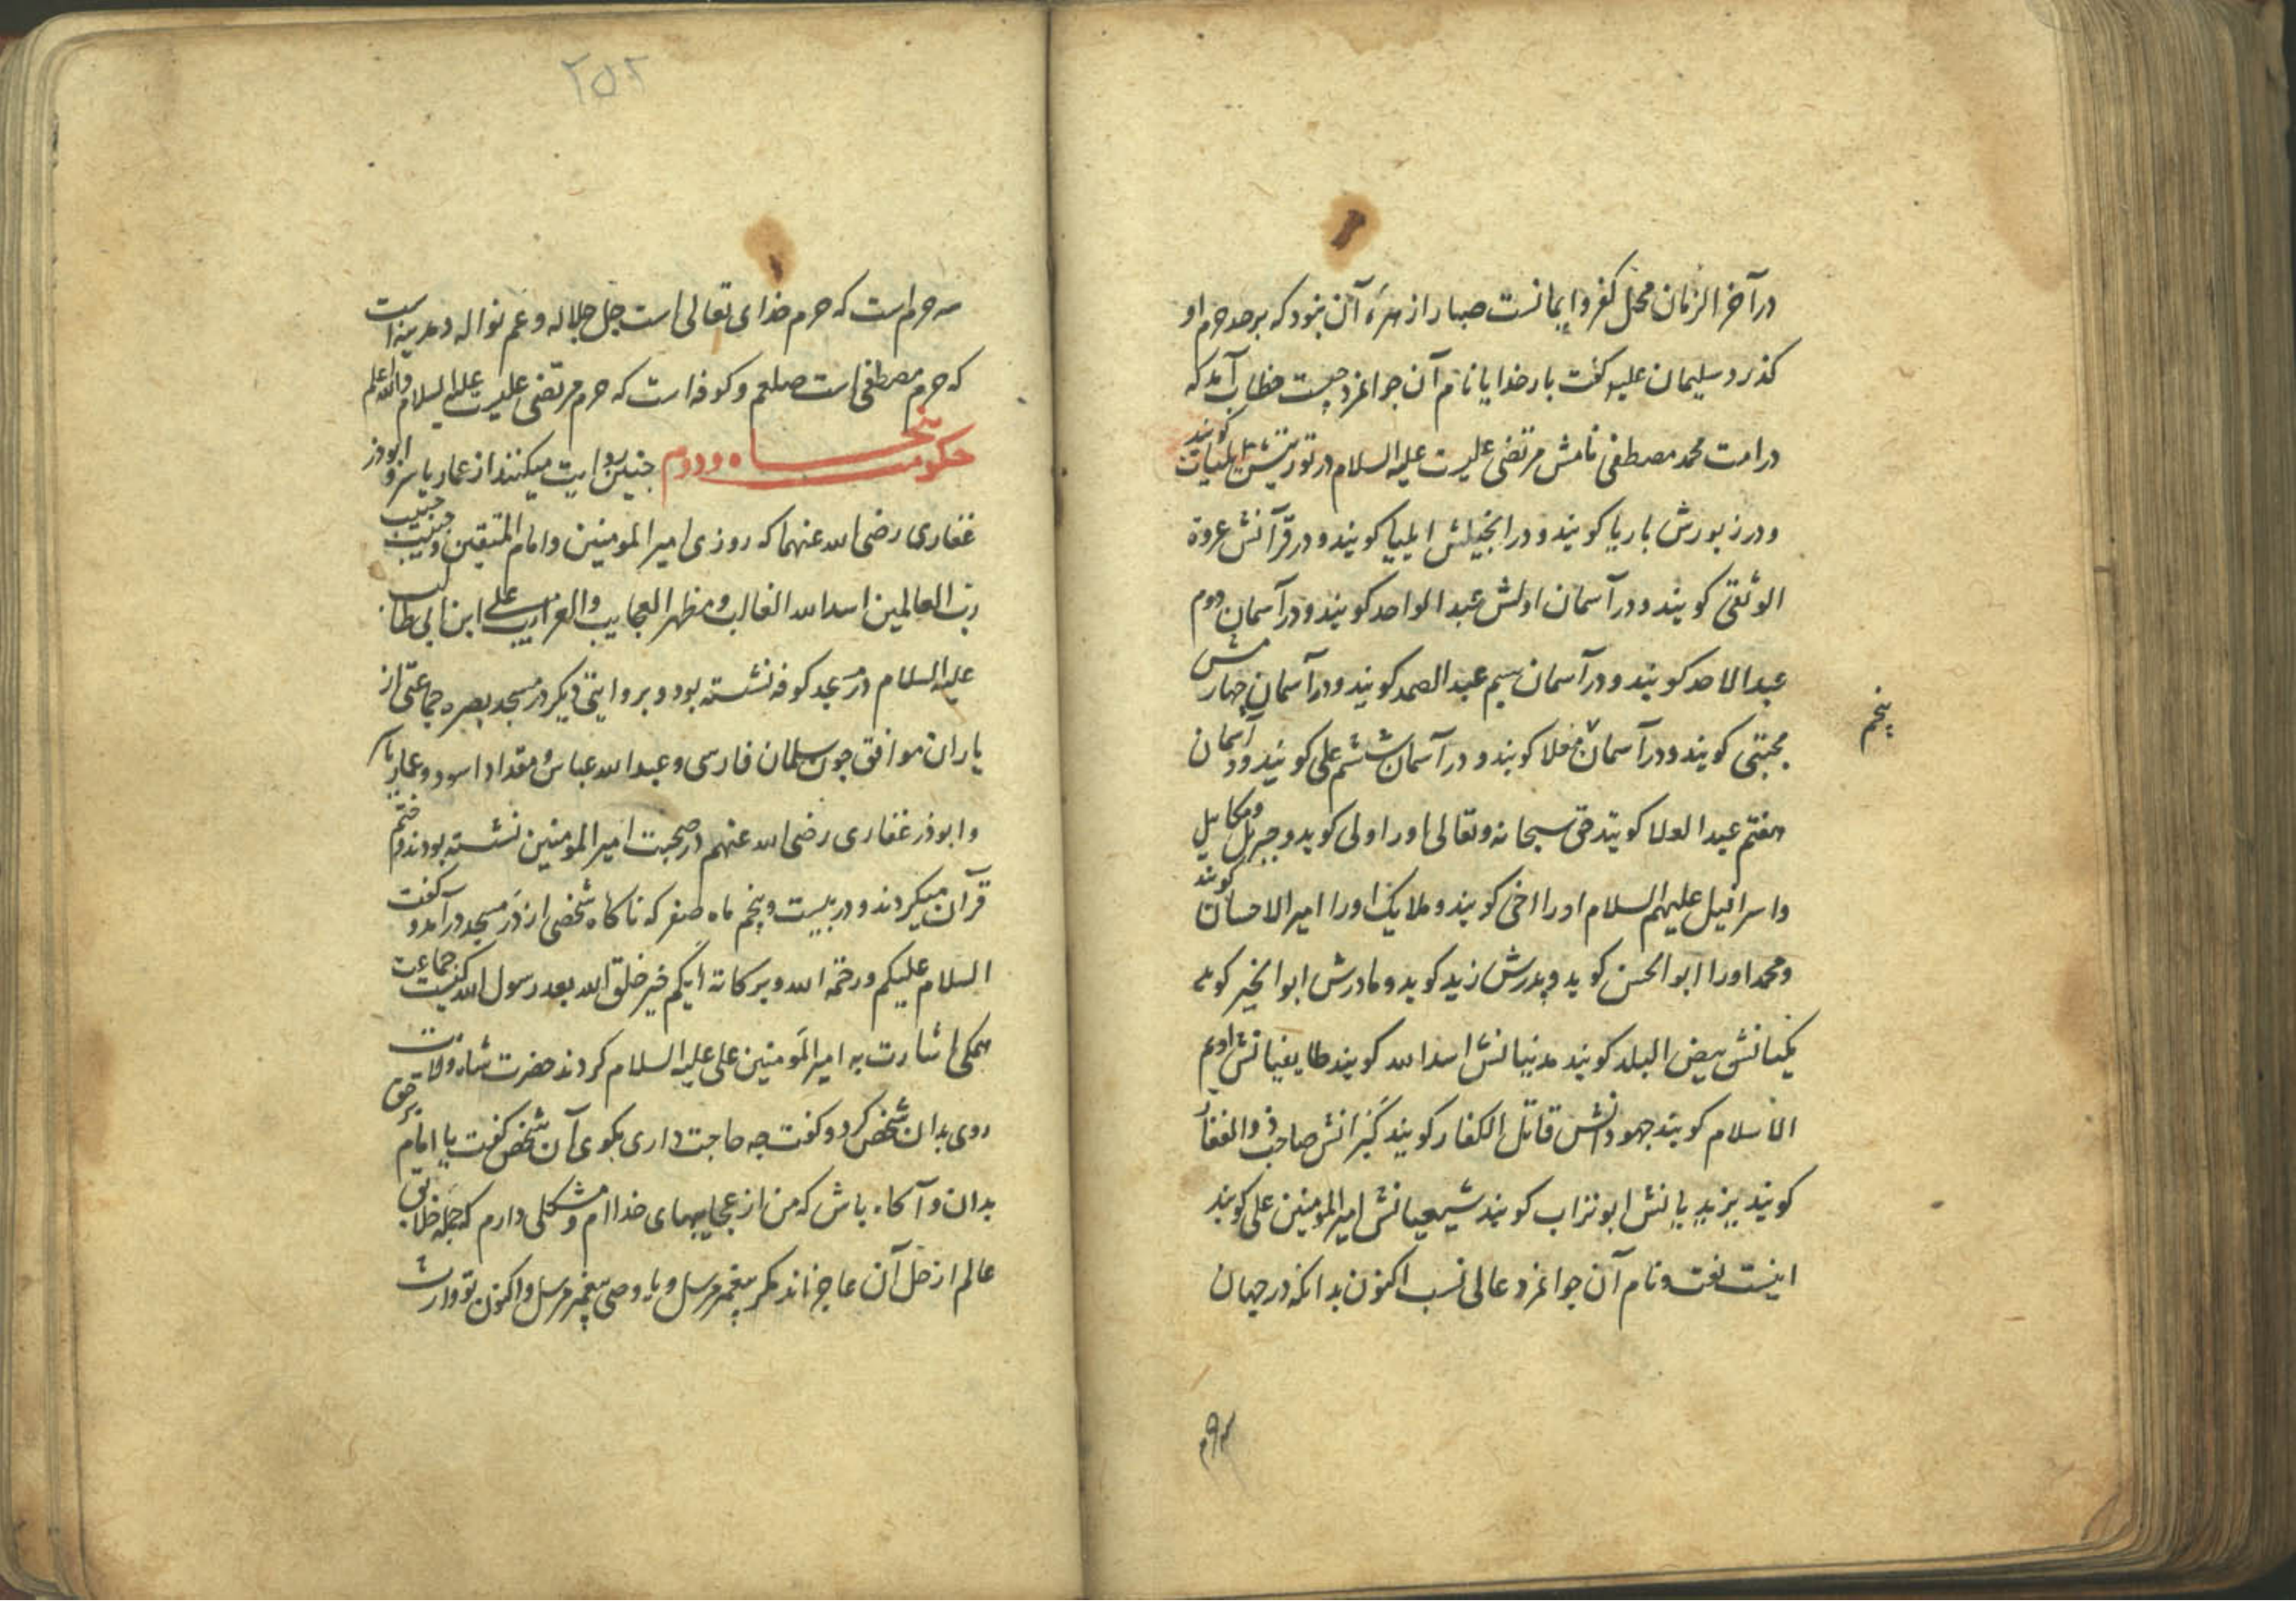 در آخر الزمان محل کفر و ایمانست صبا را زهرهٔ آن نبود که بر حد حرم او
کذرد سلیمان علیه کفت بار خدایا نام آن جوانمرد چیست خطاب آمد که
در امت محمد مصطفی نامش مرتضی علیست علیه السلام در توریتش ایلیات کویند
و در زبورش باریا کویند و در انجیلش ایلیا کویند و در قرآنش عروة
الوثقی کویند و در آسمان اولش عبد الواحد کویند و در آسمان دوم
عبد الاحد کویند و در آسمان سیم عبد الصمد کویند و در آسمان چهارمش
مجتبی کویند و در آسمان فلا کویند و در آسمان ششم علی کویند و در آسمان
پنجم
هفتم عبد العلا کویند حق سبحانه و تعالی او را ولی کوید و جبریل و میکاییل
و اسرافیل علیهم السلام او را اخی کویند و ملایک او را امیر الاحسان کویند
و محمد او را ابو الحسن کوید و پدرش زید کوید و مادرش ابو الخیر کوید
مکیانش بیض البلد کویند مدنیانش اسد الله کویند طایفیانش
الاسلام کویند جهودانش قاتل الکفار کویند کبرانش صاحب ذو الفقار
کویند یزیدیانش ابوتراب کویند شیعیانش امیر المومنین علی کویند
اینست نعت و نام آن جوانمرد عالی نسب اکنون بدانکه در جهان
۲۵۲
سه حرم است که حرم خدای تعالی است جل جلاله و عم نواله و مدینه است
که حرم مصطفی است صلعم و کوفه است که حرم مرتضی علیست علیه السلام والله اعلم
حکومت پنجاه و دوم چنین روایت میکنند از عمار یاسر و ابوذر
غفاری رضی الله عنهما که روزی امیر المومنین و امام المتقین و حبیب
رب العالمین اسد الله الغالب و مظهر العجایب و الغرایب علی ابن ابی طالب
علیه السلام در مسجد کوفه نشسته بود و بروایتی دیکر در مسجد بصره جماعتی از
یاران موافق چون سلمان فارسی و عبد الله عباس و مقداد اسود و عمار یاسر
و ابوذر غفاری رضی الله عنهم در صحبت امیر المومنین نشسته بودند و ختم
قرآن میکردند و در بیست و پنجم ماه صفر که ناکاه شخصی از در مسجد در آمد و کفت
السلام علیکم و رحمة الله و برکاته ایکم خیر خلق الله بعد رسول الله کیست جماعت
همکی اشارت به امیر المومنین علی علیه السلام کردند حضرت شاه ولایت
روی بدان شخص کرد و کفت چه حاجت داری بکوی آن شخص کفت یا امام بحق
بدان و آکاه باش که من از عجایبهای خداام و مشکلی دارم که جمله خلایق
عالم از حل آن عاجزاند مکر پیغمبر مرسل و یا وصی پیغمبر مرسل و اکنون تو وارث